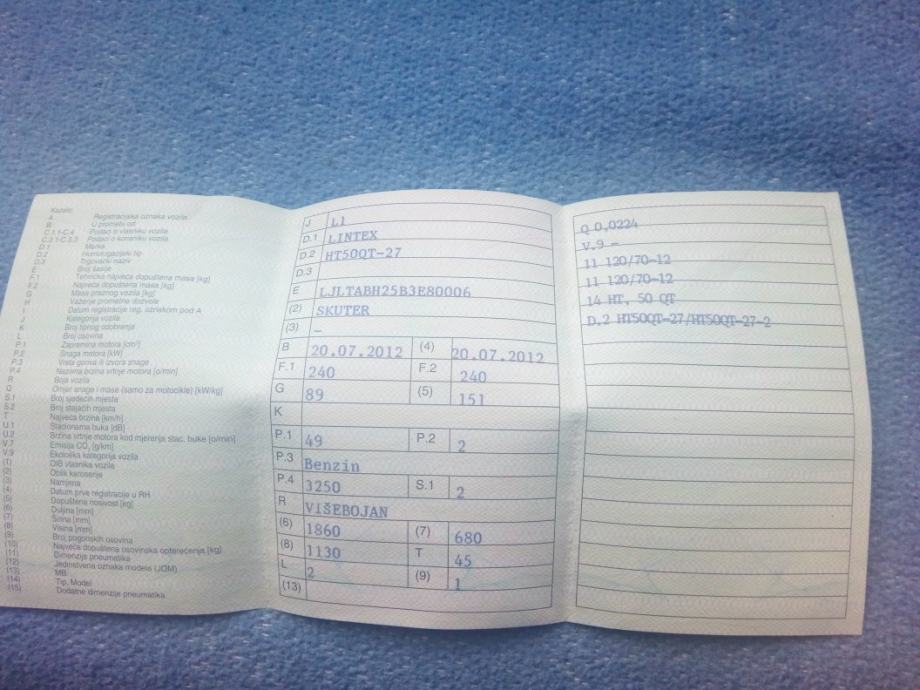 Kazalo:
A Registracijska oznaka vozila
B U prometu od
C.1.1-C.4 Podaci o vlasniku vozila
C.3.1-C.3.3 Podaci o korisniku vozila
D.1 Marka
D.2 Homologacijski tip
D.3 Trgovački naziv
E Broj šasije
F.1 Tehnička najveća dopuštena masa [kg]
F.2 Najveća dopuštena masa [kg]
G Masa praznog vozila [kg]
H Važenje prometne dozvole
I Datum registracije reg. oznakom pod A
J Kategorija vozila
K Broj tipnog odobrenja
L Broj osovina
P.1 Zapremina motora [cm³]
P.2 Snaga motora [kW]
P.3 Vrsta goriva ili izvora snage
P.4 Nazivna brzina vrtnje motora [o/min]
R Boja vozila
Q Omjer snage i mase (samo za motocikle) [kW/kg]
S.1 Broj sjedećih mjesta
S.2 Broj stajaćih mjesta
T Najveća brzina [km/h]
U.1 Stacionarna buka [dB]
U.2 Brzina vrtnje motora kod mjerenja stac. buke [o/min]
V.7 Emisija CO₂ [g/km]
V.9 Ekološka kategorija vozila
(1) OIB vlasnika vozila
(2) Oblik karoserije
(3) Namjena
(4) Datum prve registracije u RH
(5) Dopuštena nosivost [kg]
(6) Duljina [mm]
(7) Širina [mm]
(8) Visina [mm]
(9) Broj pogonskih osovina
(10) Najveća dopuštena osovinska opterećenja [kg]
(11) Dimenzije pneumatika
(12) Jedinstvena oznaka modela (JOM)
(13) MB
(14) Tip, Model
(15) Dodatne dimenzije pneumatika
J L1
D.1 LINTEX
D.2 HT50QT-27
D.3
E LJLTABH25B3E80006
(2) SKUTER
(3) –
B 20.07.2012 (4) 20.07.2012
F.1 240 F.2 240
G 89 (5) 151
K
P.1 49 P.2 2
P.3 Benzin
P.4 3250 S.1 2
R VIŠEBOJAN
(6) 1860 (7) 680
(8) 1130 T 45
L 2 (9) 1
(13)
Q 0,0224
V.9 –
11 120/70-12
11 120/70-12
14 HT, 50 QT
D.2 HT50QT-27/HT50QT-27-2